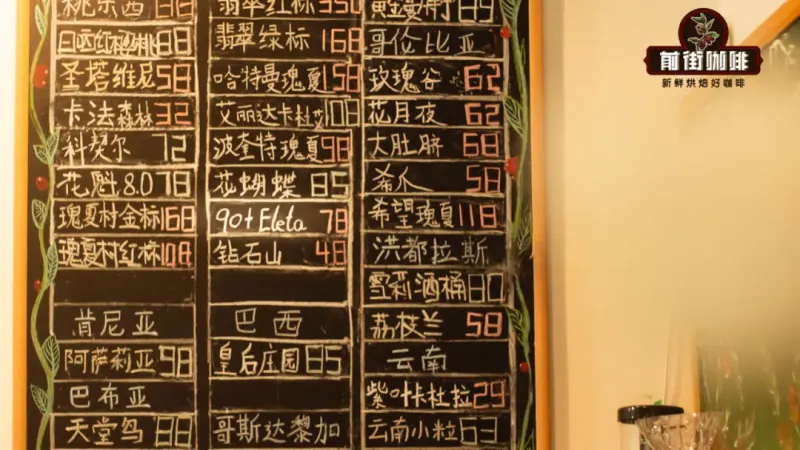 日晒红樱桃 88
圣塔维尼 58
卡法森林 32
科契尔 72
花魁8.0 78
瑰夏村金标 168
瑰夏村红标 108
肯尼亚
阿萨莉亚 98
巴布亚
天堂鸟 88
翡翠红标 350
翡翠绿标 168
哈特曼瑰夏 158
艾丽达卡杜艾 108
波奎特瑰夏 98
花蝴蝶 85
90+Eleta 78
钻石山 48
巴西
皇后庄园 85
哥斯达黎加
哥伦比亚
玫瑰谷 62
花月夜 62
大肚脐 68
希爪 58
希望瑰夏 118
洪都拉斯
雪莉酒桶 80
荔枝兰 58
云南
紫叶卡杜拉 29
云南小粒 63
前街咖啡
新鲜烘焙好咖啡